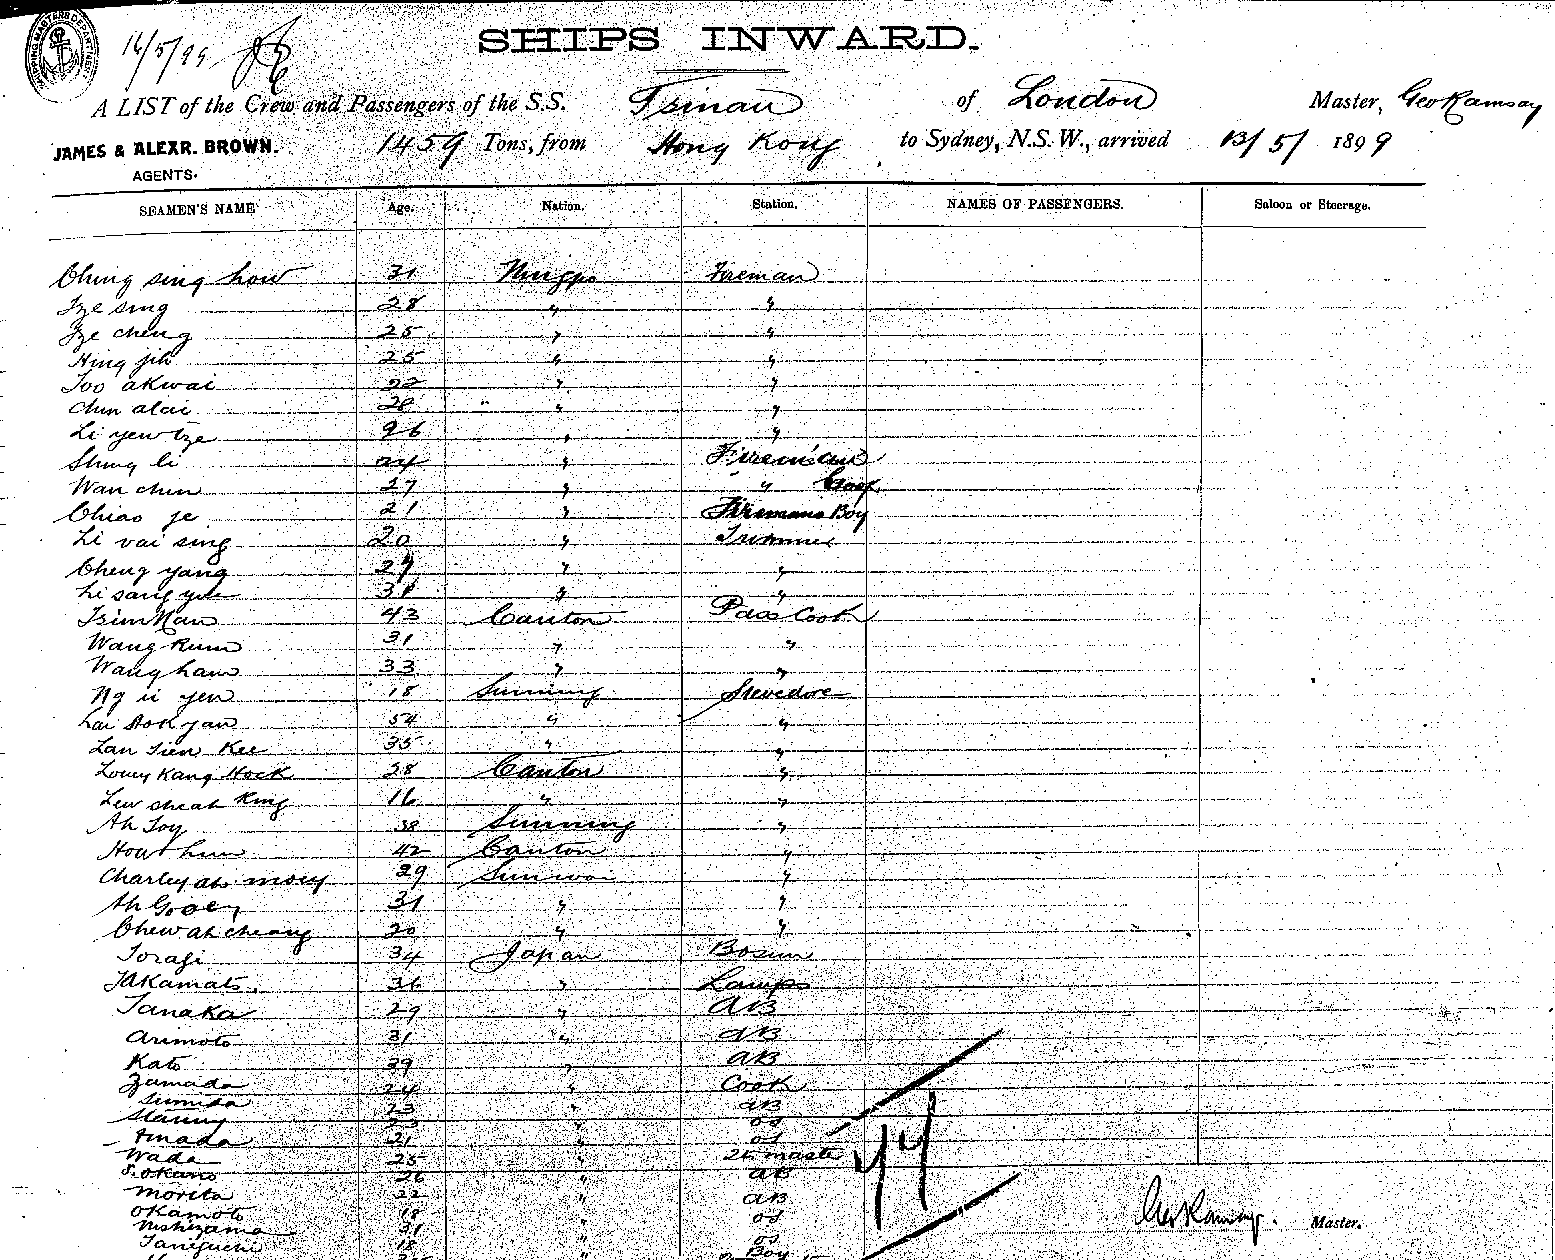 16/5/99
SHIPS INWARD.
A LIST of the Crew and Passengers of the S.S. Tsinan of London Master, Geo Ramsay
JAMES & ALEXR. BROWN. 1459 Tons, from Hong Kong to Sydney, N.S.W., arrived 13/5/1899
AGENTS.
SEAMEN'S NAME Age. Nation. Station. NAMES OF PASSENGERS. Saloon or Steerage.
Ching sing how 31 Ningpo Fireman
Tze sing 28 " "
Tze cheng 25 " "
Hing 25 " "
Too akwai 22 " "
Chin alai 28 " "
Li yew tze 26 " "
Shing li 24 " Fireman
Wan chin 27 " "
Chiao je 21 " Firemans Boy
Li vai sing 20 " Trimmer
Cheng yang 29 " "
Li sang yue 31 " "
Tsim Nan 43 Canton Pass Cook
Wang Kum 31 " "
Wang ham 33 " "
Ng ii yen 18 Sunning Stevedore
Lai Sok yan 54 " "
Lan Sien Kee 35 " "
Louey Kang Hock 28 Canton "
Lew sheah King 16 " "
Ah Toy 38 Sunning "
How hum 42 Canton "
Charley ah mouy 29 Sunwoi "
Ah Gooey 31 " "
Chew ah cheang 20 " "
Toragi 34 Japan Bosun
Takamato 36 " Lamps
Tanaka 29 " AB
Arimoto 31 " AB
Kato 39 " AB
Yamada 24 " Cook
Sumida 23 " AB
" os
Amada 21 " os
Wada 25 "
S. Okano 26 " AB
Morita 22 " AB
Okamoto 18 " os
Nishizama 31 " os
Taniguchi 18 " Boy
Geo Ramsay. Master.